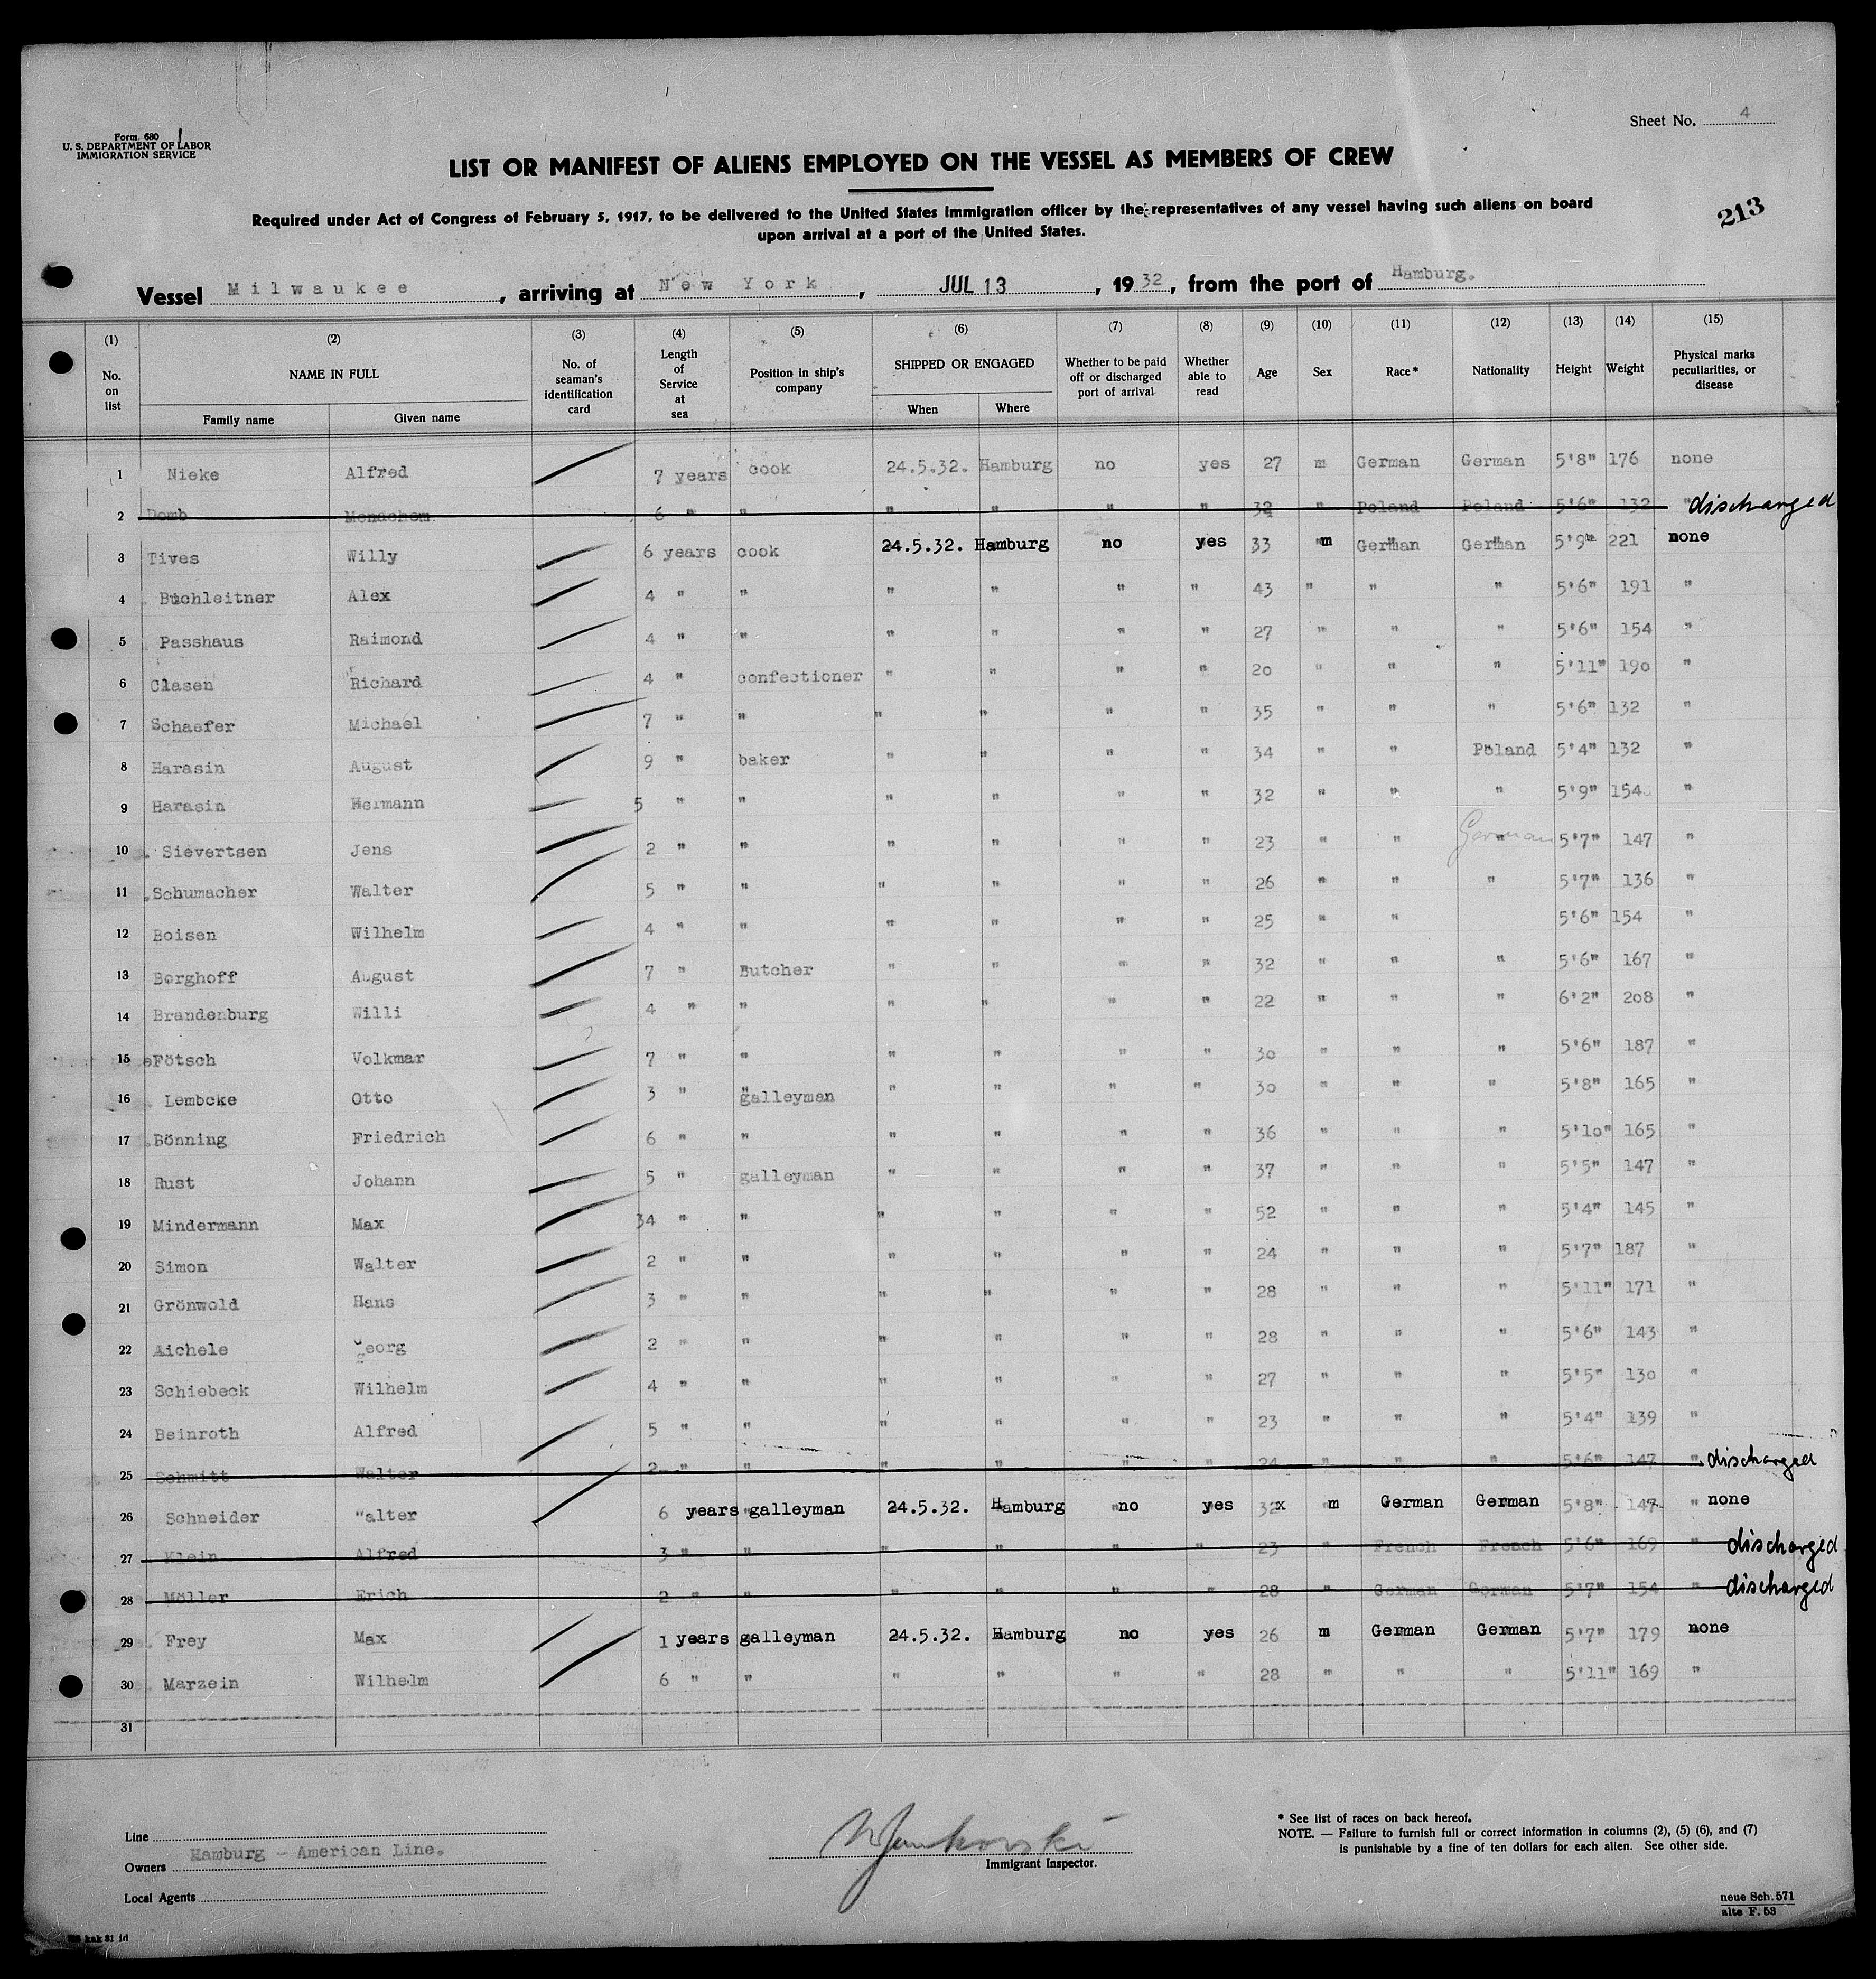 Form 680
U. S. DEPARTMENT OF LABOR
IMMIGRATION SERVICE
Sheet No. 4
LIST OR MANIFEST OF ALIENS EMPLOYED ON THE VESSEL AS MEMBERS OF CREW
Required under Act of Congress of February 5, 1917, to be delivered to the United States immigration officer by the representatives of any vessel having such aliens on board
upon arrival at a port of the United States.
213
Vessel Milwaukee, arriving at New York, JUL 13, 1932, from the port of Hamburg.
(1) (2) (3) (4) (5) (6) (7) (8) (9) (10) (11) (12) (13) (14) (15)
No. on list NAME IN FULL Family name Given name No. of seaman's identification card Length of Service at sea Position in ship's company SHIPPED OR ENGAGED When Where Whether to be paid off or discharged port of arrival Whether able to read Age Sex Race* Nationality Height Weight Physical marks peculiarities, or disease
1 Nieke Alfred 7 years cook 24.5.32. Hamburg no yes 27 m German German 5'8" 176 none
2 Domb Menachem 6 " " " " " " 32 " Poland Poland 5'6" 132 " discharged
3 Tives Willy 6 years cook 24.5.32. Hamburg no yes 33 m German German 5'9" 221 none
4 Buchleitner Alex 4 " " " " " " 43 " " " 5'6" 191 "
5 Passhaus Raimond 4 " " " " " " 27 " " " 5'6" 154 "
6 Clasen Richard 4 " confectioner " " " " 20 " " " 5'11" 190 "
7 Schaefer Michael 7 " " " " " " 35 " " " 5'6" 132 "
8 Harasin August 9 " baker " " " " 34 " " Poland 5'4" 132 "
9 Harasin Hermann 5 " " " " " " 32 " " " 5'9" 154 "
10 Sievertsen Jens 2 " " " " " " 23 " " German 5'7" 147 "
11 Schumacher Walter 5 " " " " " " 26 " " " 5'7" 136 "
12 Boisen Wilhelm 4 " " " " " " 25 " " 5'6" 154 "
13 Borghoff August 7 " Butcher " " " " 32 " " " 5'6" 167 "
14 Brandenburg Willi 4 " " " " " " 22 " " " 6'2" 208 "
15 Fötsch Volkmar 7 " " " " " " 30 " " " 5'6" 187 "
16 Lembcke Otto 3 " galleyman " " " " 30 " " " 5'8" 165 "
17 Bönning Friedrich 6 " " " " " " 36 " " " 5'10" 165 "
18 Rust Johann 5 " galleyman " " " " 37 " " " 5'5" 147 "
19 Mindermann Max 34 " " " " " " 52 " " " 5'4" 145 "
20 Simon Walter 2 " " " " " " 24 " " " 5'7" 187 "
21 Grönwold Hans 3 " " " " " " 28 " " " 5'11" 171 "
22 Aichele Georg 2 " " " " " " 28 " " " 5'6" 143 "
23 Schiebeck Wilhelm 4 " " " " " " 27 " " " 5'5" 130 "
24 Beinroth Alfred 5 " " " " " " 23 " " " 5'4" 139 "
25 Schmitt Walter 2 " " " " " " 24 " " " 5'6" 147 " discharged
26 Schneider "alter 6 years galleyman 24.5.32. Hamburg no yes 32x m German German 5'8" 147 " none
27 Klein Alfred 3 " " " " " " 23 " French French 5'6" 169 " discharged
28 Möller Erich 2 " " " " " " 28 " German German 5'7" 154 " discharged
29 Frey Max 1 years galleyman 24.5.32. Hamburg no yes 26 m German German 5'7" 179 none
30 Marzein Wilhelm 6 " " " " " " 28 " " " 5'11" 169 "
31
Line
Owners Hamburg - American Line.
Local Agents
Immigrant Inspector.
* See list of races on back hereof.
NOTE. — Failure to furnish full or correct information in columns (2), (5) (6), and (7)
is punishable by a fine of ten dollars for each alien. See other side.
neue Sch. 571
alte F. 53
kak 31 id